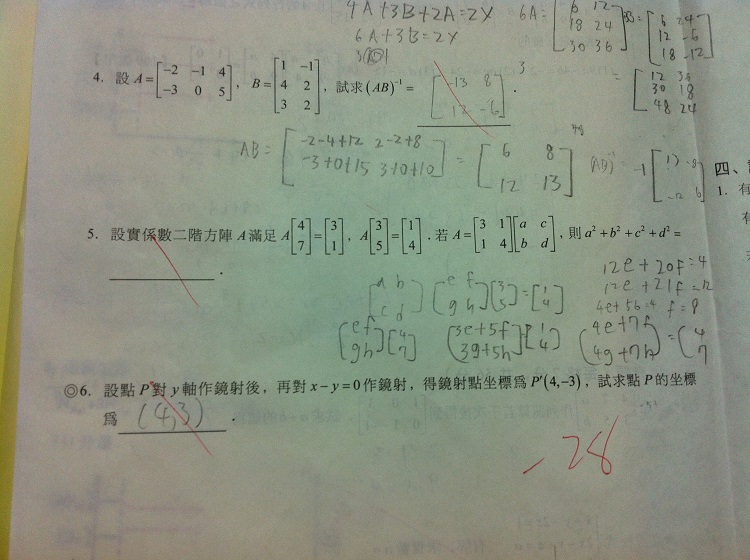 4A+3B+2A=2X
6A+3B=2X
6A= [6 12 / 18 24 / 30 36]
3B= [6 24 / 12 -6 / 18 -12]
= [12 36 / 30 18 / 48 24]
4. 設 A=[-2 -1 4 / -3 0 5], B=[1 -1 / 4 2 / 3 2], 試求 (AB)⁻¹= [-13 8 / 12 -6] .
3
AB= [-2-4+12 2-2+8 / -3+0+15 3+0+10] = [6 8 / 12 13]
(AB)⁻¹ -1 [13 -8 / -12 6]
四、
1. 有
有
5. 設實係數二階方陣 A 滿足 A[4 / 7]=[3 / 1], A[3 / 5]=[1 / 4]. 若 A=[3 1 / 1 4][a c / b d], 則 a²+b²+c²+d²=
.
12e+20f=4
12e+21f=12
4e+5b=4 f=8
[a b / c d] [e f / g h][3 / 5]=[1 / 4]
[e f / g h][4 / 7] [3e+5f / 3g+5h][1 / 4] [4e+7f / 4g+7h]=[4 / 7]
◎6. 設點 P 對 y 軸作鏡射後，再對 x-y=0 作鏡射，得鏡射點坐標為 P'(4,-3)，試求點 P 的坐標
為 (4,3) .
-28